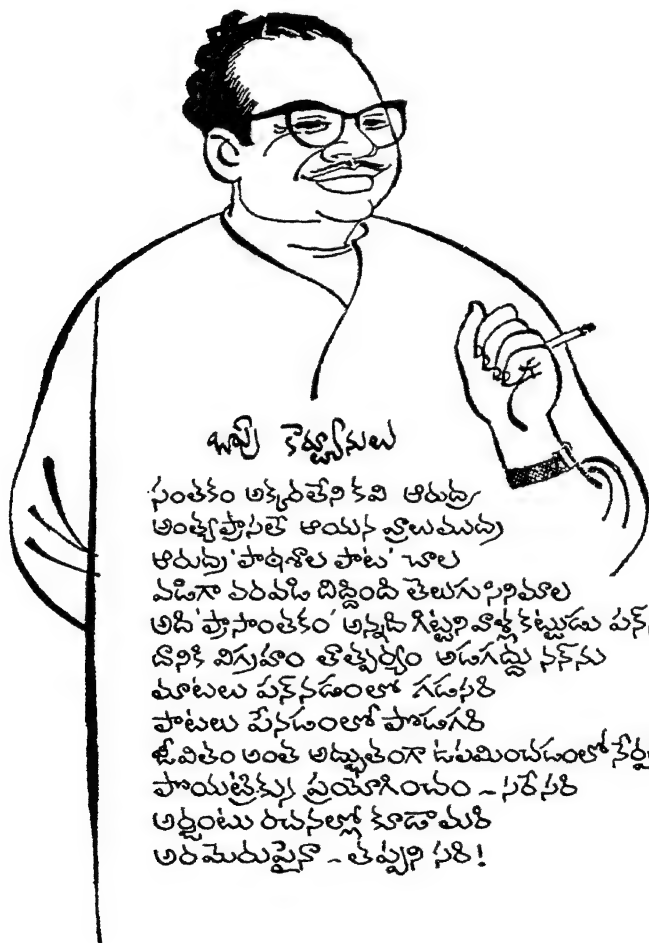 బాపు కెర్ట్యూనులు
సంతకం అక్కరలేని కవి ఆరుద్ర
అంత్యప్రాసలే ఆయన వ్రాలుముద్ర
ఆరుద్ర 'పాఠశాల పాట' చాల
వడిగా వరవడి దిద్దింది తెలుగుసినిమాల
అది 'ప్రాసాంతకం' అన్నది గిట్టని వాళ్ల కట్టుడు
దానికి విగ్రహం తాత్పర్యం అడగద్దు నన్ను
మాటలు పన్నడంలో గడసరి
పాటలు పేనడంలో పొడగరి
జీవితం అంత అద్భుతంగా ఉపమించడంలో
పొయట్రిక్కు ప్రయోగించం - సరేసరి
అర్జంటు రచనల్లో కూడా మరి
అర మెరుపైనా - తప్పని సరి!